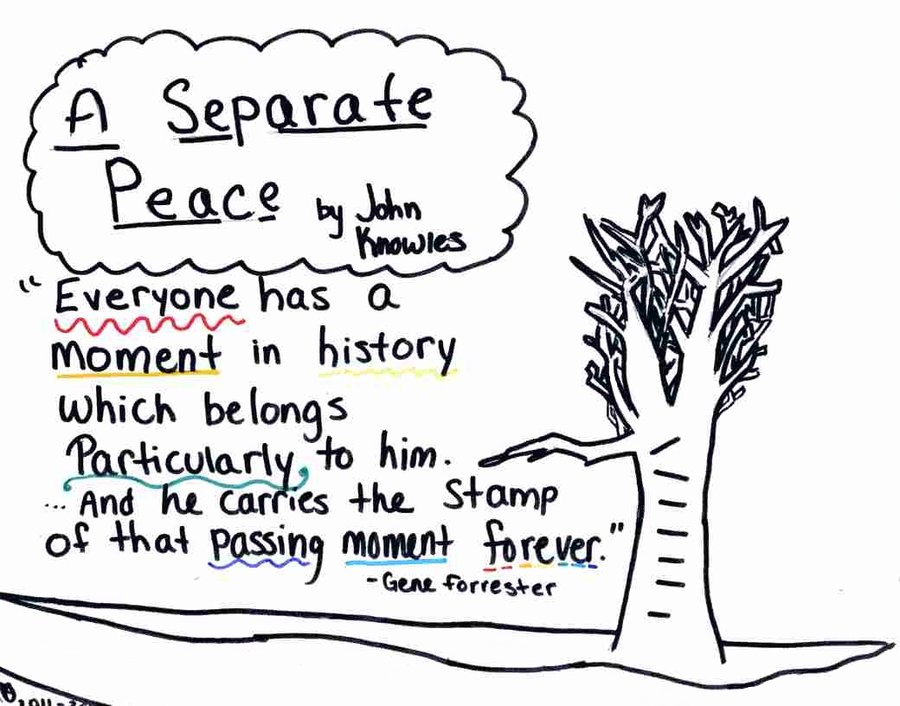 A Separate
Peace by John
Knowles
"Everyone has a
moment in history
which belongs
Particularly to him.
... And he carries the stamp
of that passing moment forever."
-Gene Forrester